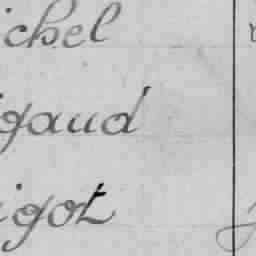 ichel
igaud
igot